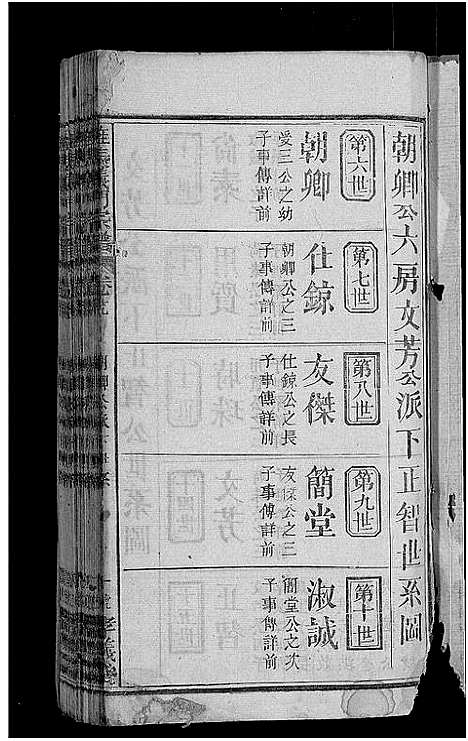 朝卿公六房文芳公派下正智世系圖
第六世
朝卿
受三公之幼
子事傳詳前
第七世
仕鯨
朝卿公之三
子事傳詳前
第八世
友傑
仕鯨公之長
子事傳詳前
第九世
簡堂
友傑公之三
子事傳詳前
第十世
淑誠
簡堂公之次
子事傳詳前